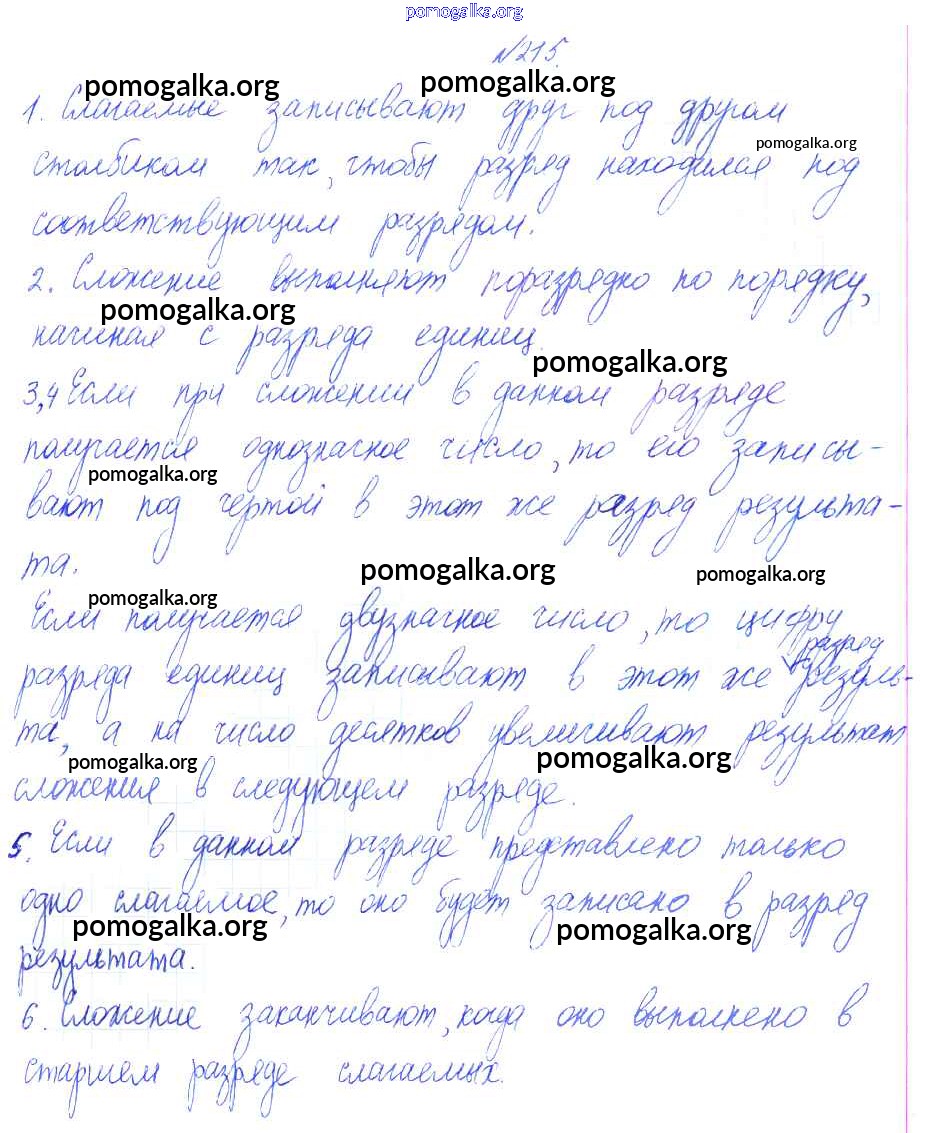 pomogalka.org
№215.
pomogalka.org pomogalka.org
1. Слагаемые записывают друг под другом
pomogalka.org
столбиком так, чтобы разряд находился под
соответствующим разрядом.
2. Сложение выполняют поразрядно по порядку,
pomogalka.org
начиная с разряда единиц.
pomogalka.org
3,4 Если при сложении в данном разряде
получается однозначное число, то его записы-
pomogalka.org
вают под чертой в этот же разряд результа-
та.
pomogalka.org pomogalka.org
pomogalka.org
Если получается двузначное число, то цифру
разряд
разряда единиц записывают в этот же резуль-
та, а на число десятков увеличивают результат
pomogalka.org pomogalka.org
сложения в следующем разряде.
5. Если в данном разряде представлено только
одно слагаемое, то оно будет записано в разряд
pomogalka.org pomogalka.org
результата.
6. Сложение заканчивают, когда оно выполнено в
старшем разряде слагаемых.